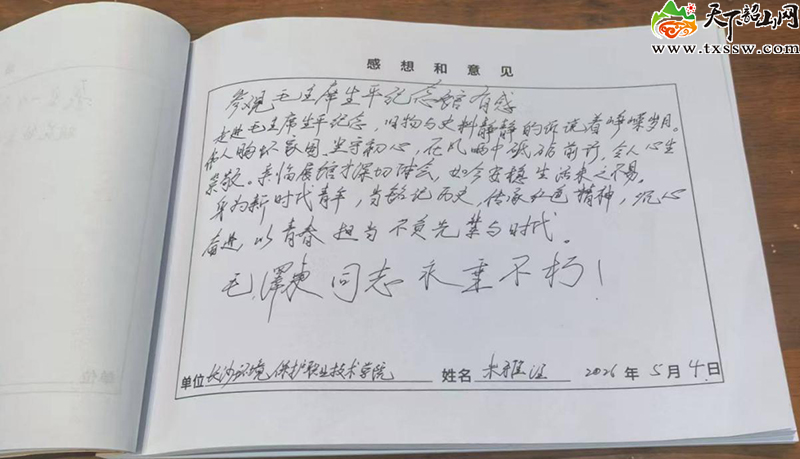 天下韶山网
www.txssw.com
感想和意见
参观毛主席生平纪念馆有感
走进毛主席生平纪念，旧物与史料静静的诉说着峥嵘岁月。
伟人胸怀家国、坚守初心，在风雨中砥砺前行，令人心生
崇敬。亲临展馆才深切体会，如今安稳生活来之不易。
身为新时代青年，当铭记历史，传承红色精神，沉心
奋进，以青春担当不负先辈与时代。
毛泽東同志永垂不朽！
单位 长沙环境保护职业技术学院 姓名 2026年5月4日
单位